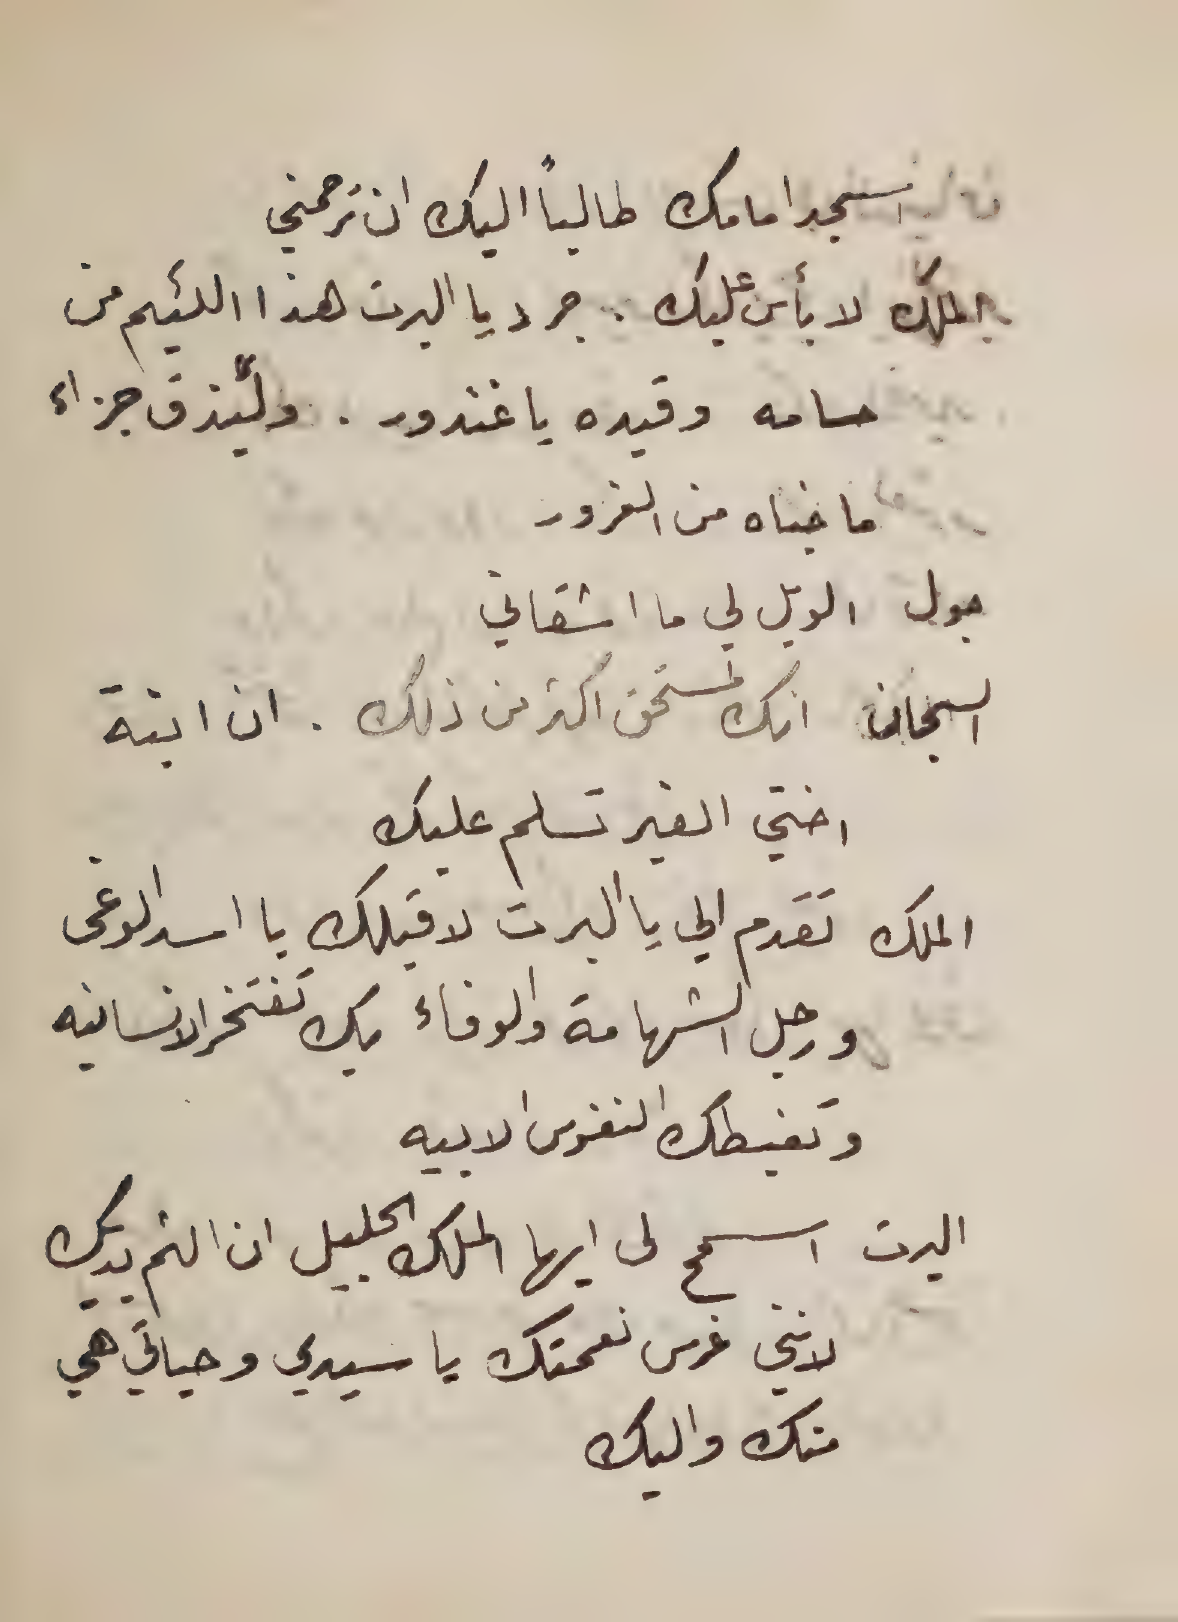 اسجد امامك طالباً اليك ان ترحمني
الملك لا بأس عليك . جرد يا البرت هذا اللئيم من
حسامه وقيده يا غندور . وليذق جزاء
ما جناه من الغرور
جول الويل لي ما اشقاني
السجان انك لمستحق اكثر من ذلك . ان ابنة
اختي الغير تسلم عليك
الملك تقدم الي يا البرت لاقبلك يا اسد الوغى
ورجل الشهامة والوفاء بك تفتخر الانسانيه
وتغبطك النفوس الابيه
البرت اسمح لى ايها الملك الجليل ان الثم يديك
لانني غرس نعمتك يا سيدي وحياتي هي
منك واليك